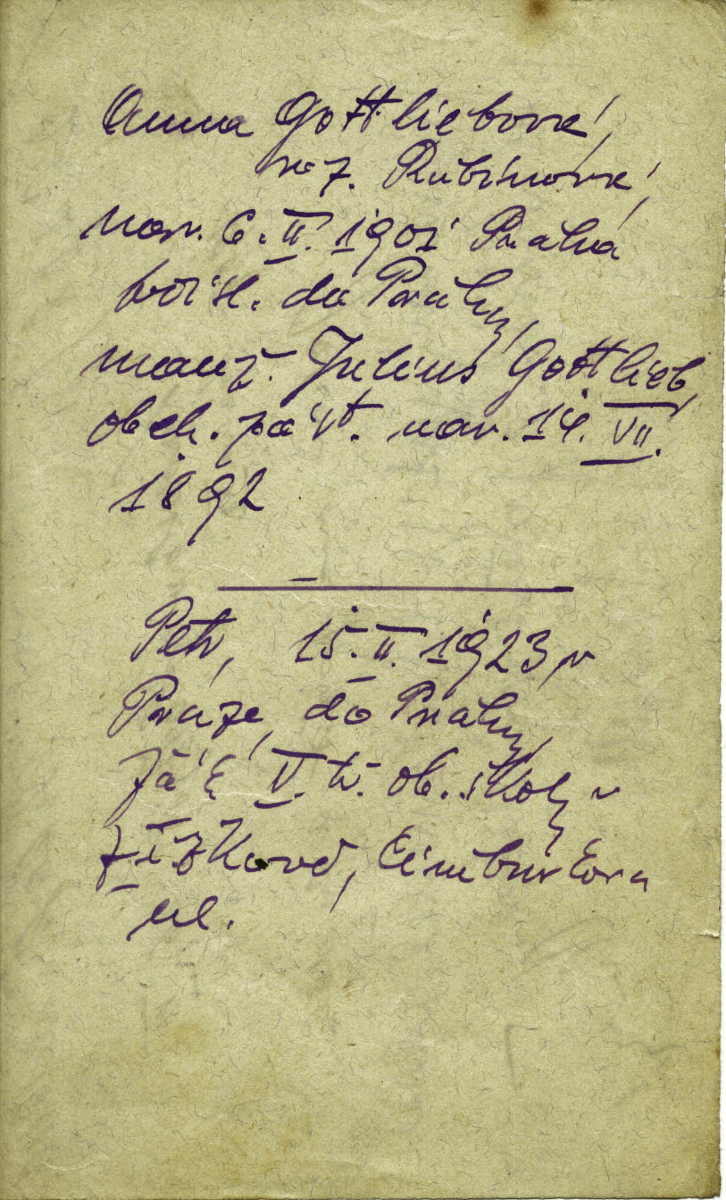 Anna Gottliebová,
roz. Rubínová,
nar. 6. II. 1901 Praha
přísl. do Prahy,
manž. Julius Gottlieb,
obch. nar. 14. VII.
1892
Petr, 15. II. 1923 v
Praze, do Prahy,
žák V. tř. ob. školy v
Žižkově, Cimburkova
ul.